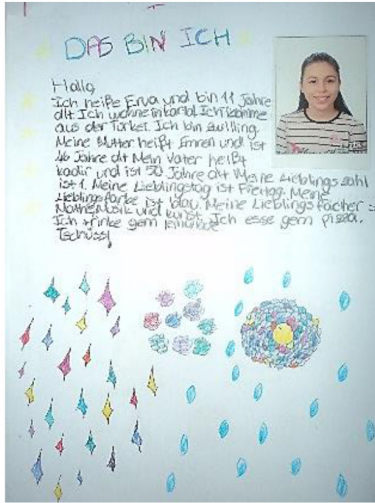 DAS BIN ICH
Hallo,
Ich heiße Erva und bin 11 Jahre
alt. Ich wohne in Kartal. Ich komme
aus der Türkei. Ich bin zwilling.
Meine Mutter heißt Emren und ist
46 Jahre alt Mein Vater heißt
kadir und ist 50 Jahre alt Meine Lieblingszahl
ist 1. Meine Lieblingstag ist Freitag. Meine
Lieblingsfarbe ist blau. Meine Lieblings fächer =
Mathe Musik und kunst. Ich esse gern pizza.
Ich trinke gern limonade
Tschüss!